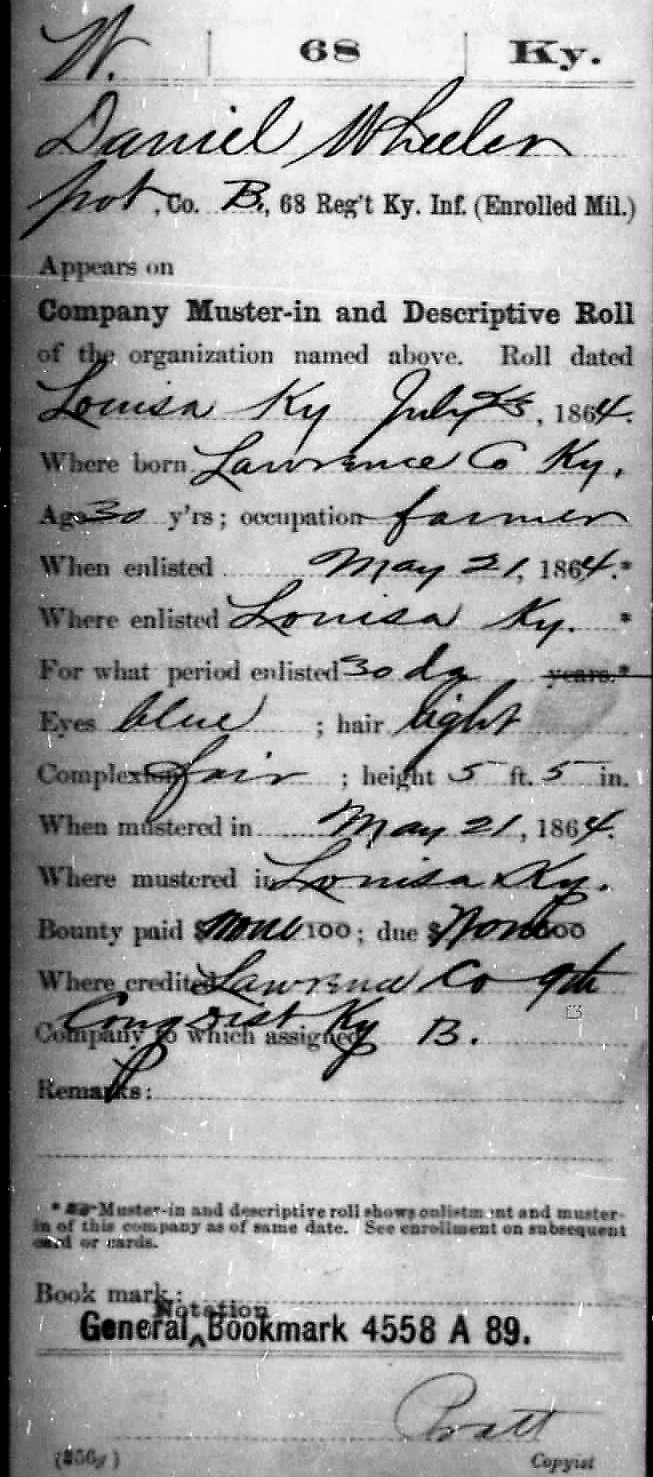 W. | 68 | Ky.
Daniel Wheeler
pvt, Co. B., 68 Reg't Ky. Inf. (Enrolled Mil.)
Appears on
Company Muster-in and Descriptive Roll
of the organization named above. Roll dated
Louisa Ky July 25, 1864.
Where born Lawrence Co Ky.
Age 30 y'rs; occupation farmer
When enlisted May 21, 1864.*
Where enlisted Louisa Ky. *
For what period enlisted 30 da years.*
Eyes blue ; hair light
Complexion fair ; height 5 ft. 5 in.
When mustered in May 21, 1864.
Where mustered in Louisa Ky.
Bounty paid $ none 100; due $ None 100
Where credited Lawrence Co 9th
Cong Dist Ky
Company to which assigned B.
Remarks:
* Muster-in and descriptive roll shows enlistment and muster-
in of this company as of same date. See enrollment on subsequent
card or cards.
Book mark:
Notation
General ^ Bookmark 4558 A 89.
Pratt
(356g) Copyist